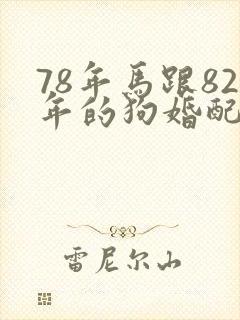 78年馬跟82
年的狗婚配
雷尼尔山